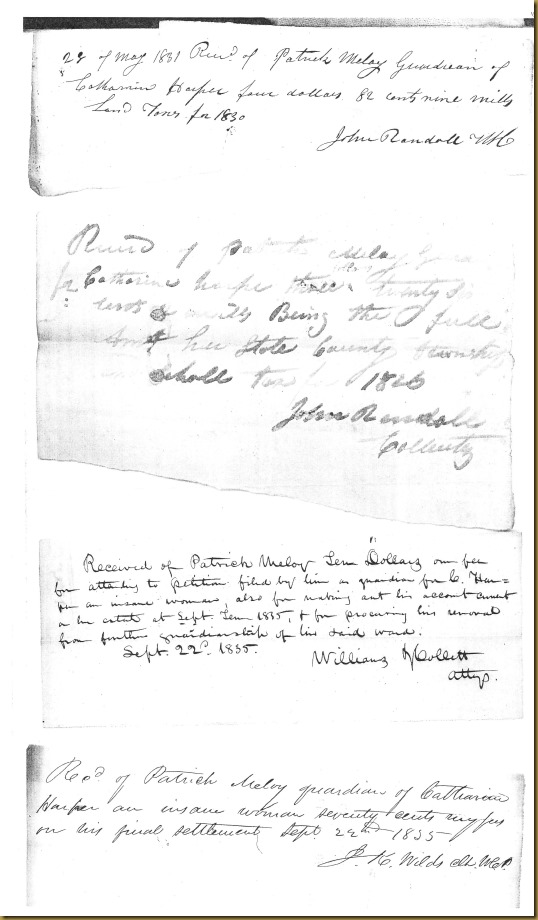 22 of may 1831 Recd. of Patrick Meloy Guardian of
Catharine Harper four dollars 82 cents nine mills
Land Taxes for 1830
John Randall
Patrick Meloy
for Catharine harpe three dollars twenty six
cents & mills Being the full
her State County township
scholl tax 1826
John Randall
Received of Patrick Meloy Ten Dollars our fee
for attending to petition filed by him as guardian for C. Har=
per an insane woman, also for making out his account current
on her estate at Sept Term 1835, & for procuring his removal
from further guardianship of his said ward.
Sept. 22d. 1835.
Williams & Collett
attys.
Recd of Patrick Meloy guardian of Catharine
Harper an insane woman seventy cents my fees
on his final settlement, Sept 22nd 1835
J. K. Wilds